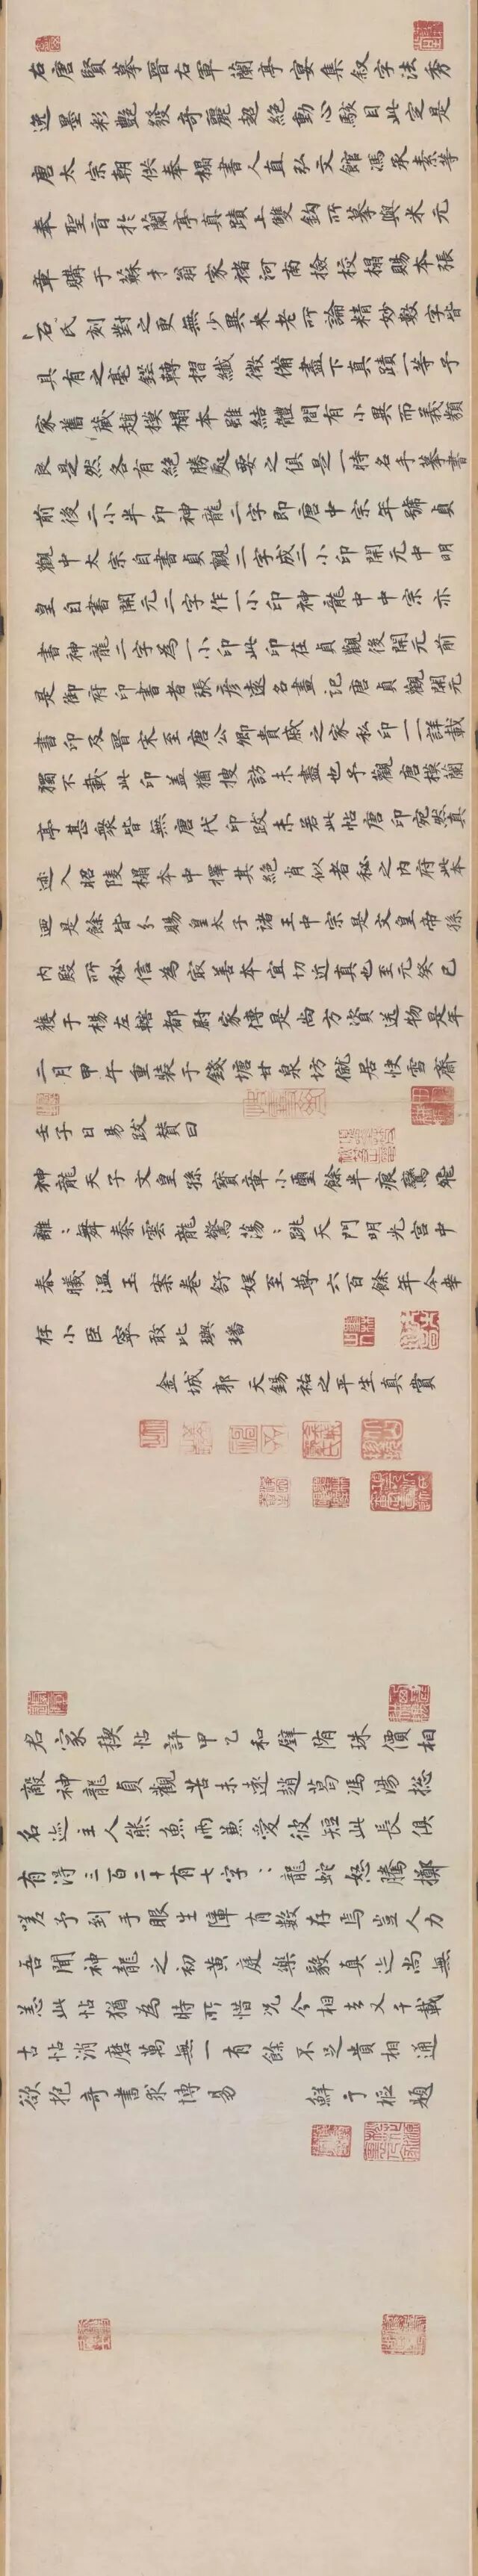 右唐賢摹晉右軍蘭亭宴集敘字法秀
逸墨彩艷發奇麗超絕動心駭目此定是
唐太宗朝供奉搨書人直弘文館馮承素等
奉聖旨於蘭亭真蹟上雙鈎所摹與米元
章購于蘇才翁家褚河南撿校搨賜本張
石氏刻對之更無少異米老所論精妙數字皆
具有之毫鋩轉摺纖微備盡下真蹟一等予
家舊藏趙模搨本雖結體間有小異而義類
良是然各有絕勝處要之俱是一時名手摹書
前後二小半印神龍二字即唐中宗年號貞
觀中太宗自書貞觀二字成二小印開元中明
皇自書開元二字作一小印神龍中中宗亦
書神龍二字為一小印此印在貞觀後開元前
是御府印書者張彥遠名畫記唐貞觀開元
書印及晉宋至唐公卿貴戚之家私印一一詳載
獨不載此印蓋猶搜訪未盡也予觀唐模蘭
亭甚衆皆無唐代印跋未若此帖唐印宛然真
迹入昭陵搨本中擇其絕肖似者秘之內府此本
迺是餘皆分賜皇太子諸王中宗是文皇帝孫
內殿所秘信為㝡善本宜切近真也至元癸巳
獲于楊左轄都尉家傳是尚方資送物是年
二月甲午重裝于錢塘甘泉坊僦居快雪齋
壬子日易跋贊曰
神龍天子文皇孫寶章小璽餘半痕鸞飛
離〻舞秦雲龍驚蕩〻跳天門明光宮中
春曦溫玉案卷舒娛至尊六百餘年今幸
存小臣寧敢比璵璠
金城郭天錫祐之平生真賞
君家稧帖評甲乙和璧隋珠價相
敵神龍貞觀苦未遠趙葛馮湯揔
名迹主人熊魚兩兼愛彼短此長俱
有得三百二十有七字〻龍蛇怒騰擲
嗟予到手眼生障有數存焉豈人力
吾聞神龍之初黃庭樂毅真迹尚無
恙此帖猶為時所惜況今相去又千載
古帖消磨萬無一有餘不足貴相通
欲抱奇書求博易 鮮于樞題